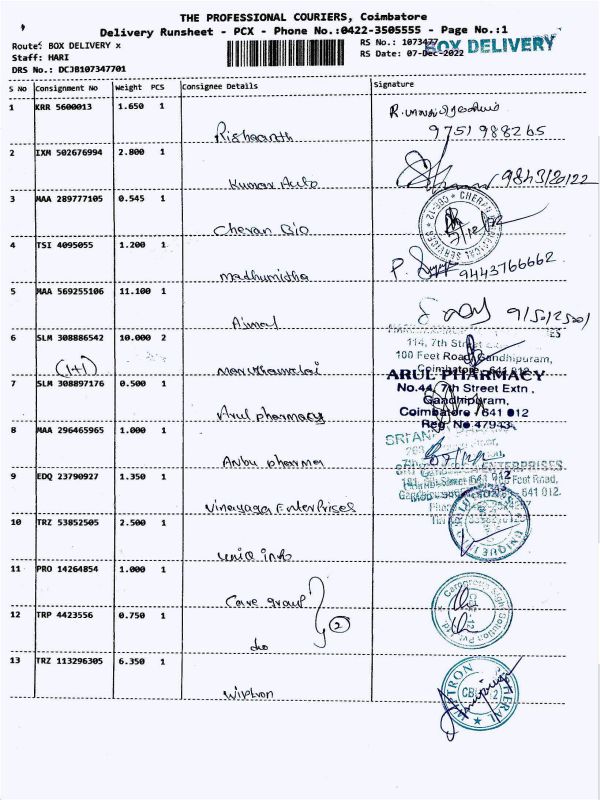 THE PROFESSIONAL COURIERS, Coimbatore
Delivery Runsheet - PCX - Phone No.:0422-3505555 - Page No.:1
Route: BOX DELIVERY x
Staff: HARI
DRS No.: DCJB107347701
RS No.: 1073477
RS Date: 07-Dec-2022
BOX DELIVERY
S No Consignment No Weight PCS Consignee Details Signature
1 KRR 5600013 1.650 1
9751988265
2 IXM 502676994 2.800 1
Kumar Auto
3 MAA 289777105 0.545 1
Cheran Bio
4 TSI 4095055 1.200 1
madhumidha 9443766662
5 MAA 569255106 11.100 1
Ajmal
6 SLM 308886542 10.000 2
(1+1) maruthamalai
114, 7th Street
100 Feet Road, Gandhipuram,
Coimbatore - 641 012
7 SLM 308897176 0.500 1
Arul pharmacy
ARUL PHARMACY
No.44, 7th Street Extn.,
Gandhipuram,
Coimbatore - 641 012
Reg. No 47943
8 MAA 296465965 1.000 1
Anbu pharma
9 EDQ 23790927 1.350 1
Vinayaga Enterprises
ENTERPRISES
641 012.
10 TRZ 53852505 2.500 1
11 PRO 14264854 1.000 1
Care group
12 TRP 4423556 0.750 1
do 2
13 TRZ 113296305 6.350 1